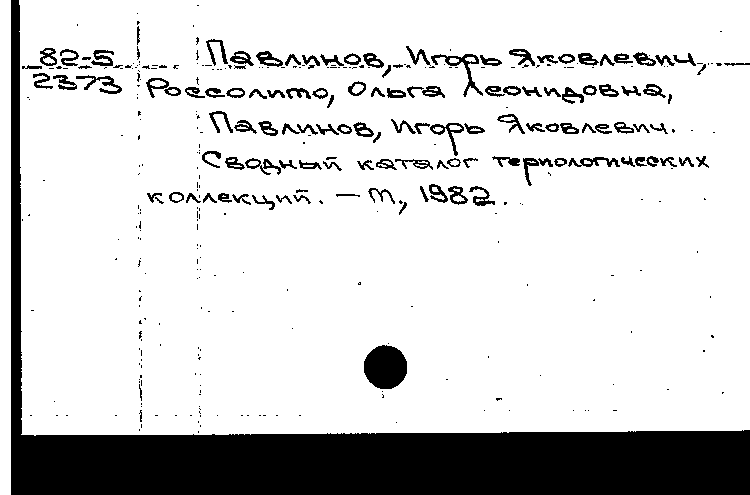 82-5 Павлинов, Игорь Яковлевич,
2373 Россолимо, Ольга Леонидовна,
Павлинов, Игорь Яковлевич.
Сводный каталог териологических
коллекций. — М, 1982.